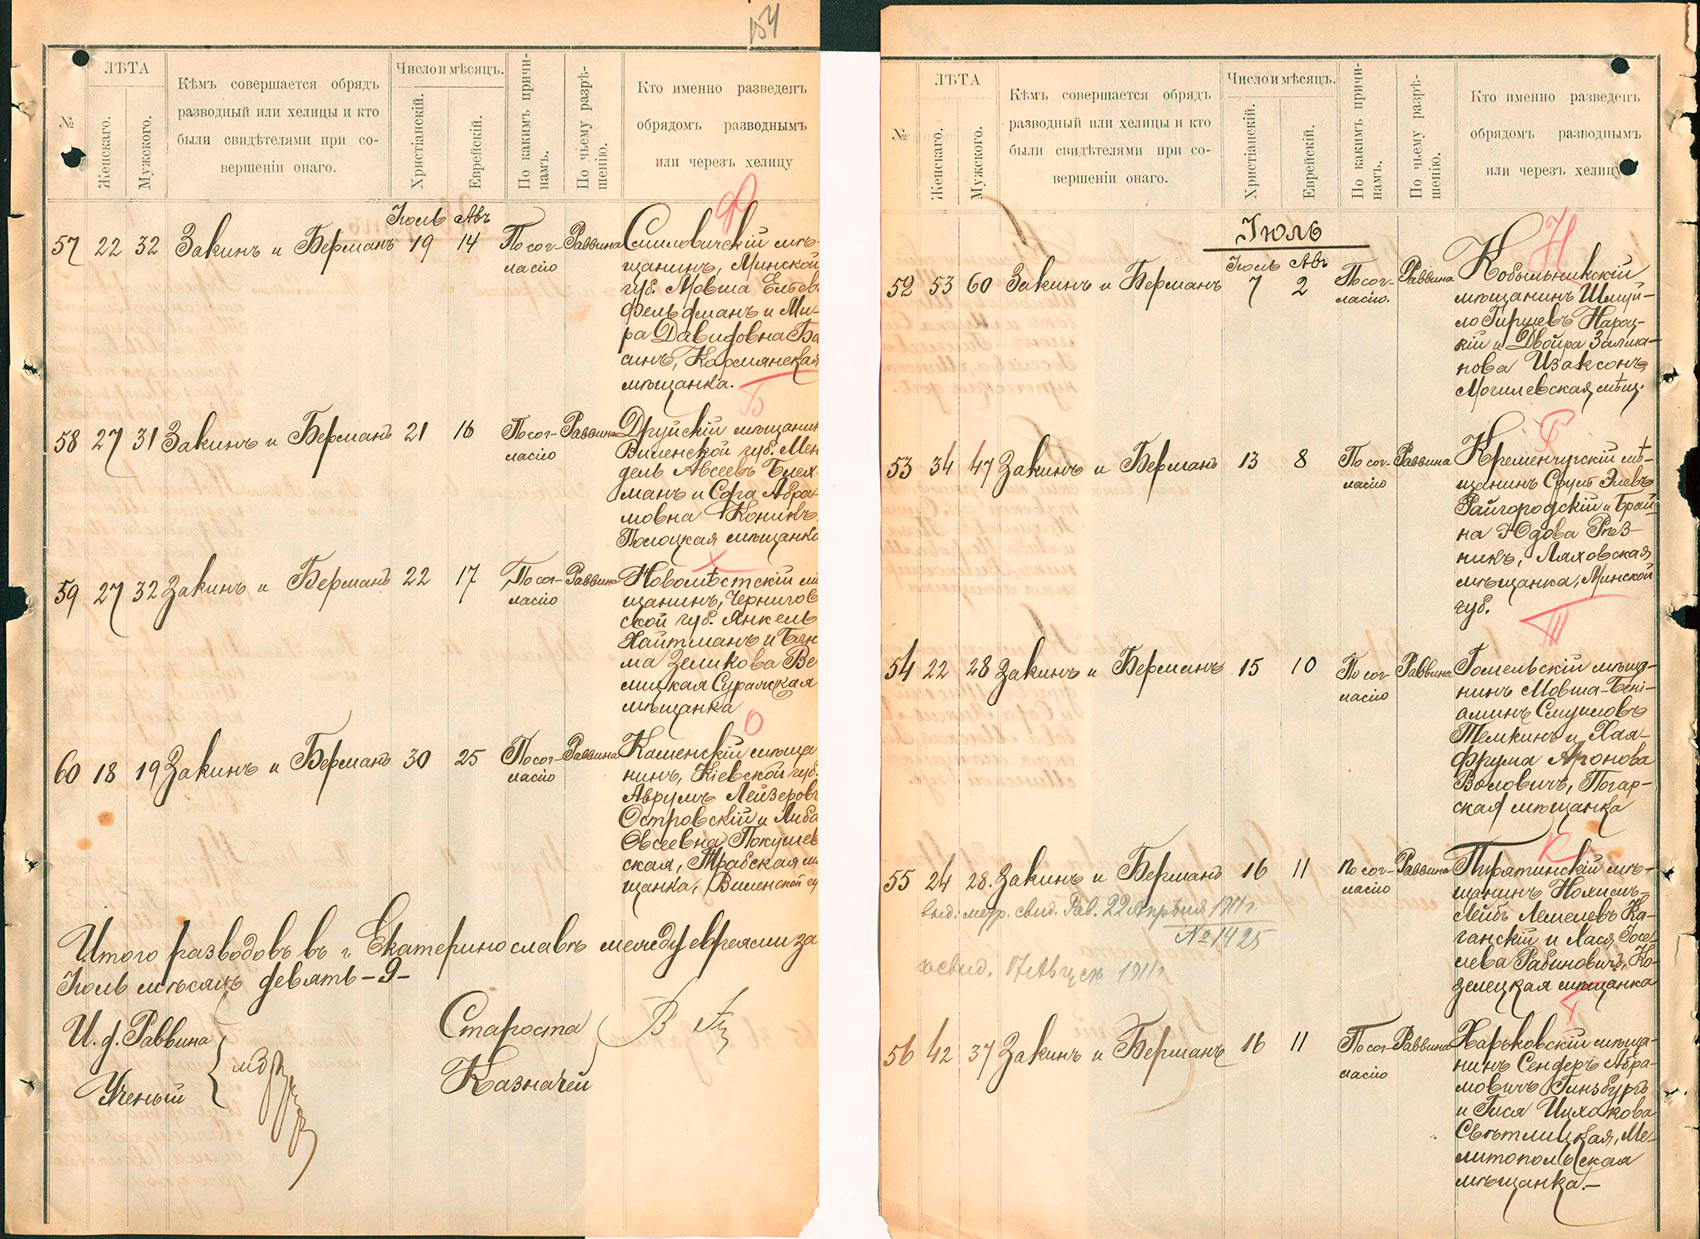 154
№
ЛѢТА
Женскаго.
Мужского.
Кѣмъ совершается обрядъ
разводный или хелицы и кто
были свидѣтелями при со-
вершеніи онаго.
Число и мѣсяцъ.
Христіанскій.
Еврейскій.
По какимъ причи-
намъ.
По чьему разрѣ-
шенію.
Кто именно разведенъ
обрядомъ разводнымъ
или черезъ хелицу
Ф
Іюль Авъ
57 22 32 Закинъ и Берманъ 19 14 По сог- Раввина Смиловичскій мѣ-
ласію
щанинъ, Минской
губ. Мовша Елевъ
Фельдманъ и Ми-
ра Давидовна Ба
синъ, Кормянская
мѣщанка.
Б
58 27 31 Закинъ и Берманъ 21 16 По сог- Раввина Друйскій мѣщанинъ
ласію
Виленской губ. Мен
дель Авсеевъ Блех
манъ и Сора Абра-
мовна Коникъ,
Полоцкая мѣщанка
Х
59 27 32 Закинъ и Берманъ 22 17 По сог- Раввина Новомѣстскій мѣ
ласію
щанинъ, Чернигов
ской губ. Янкель
Хайтманъ и
ма Зеликова Ве
лицкая Суражская
мѣщанка
О
60 18 19 Закинъ и Берманъ 30 25 По сог- Раввина Каменскій мѣща
ласію
нинъ, Кіевской губ.
Аврумъ Лейзеровъ
Островскій и Либа
Овсеевна Покушев
ская, Трабская мѣ
щанка, Виленской гу
Итого разводовъ въ г. Екатеринославѣ между евреями за
Іюль мѣсяцъ девять - 9 -
И. д. Раввина
Ученый
Староста
Казначей
№
ЛѢТА
Женскаго.
Мужского.
Кѣмъ совершается обрядъ
разводный или хелицы и кто
были свидѣтелями при со-
вершеніи онаго.
Число и мѣсяцъ.
Христіанскій.
Еврейскій.
По какимъ причи-
намъ.
По чьему разрѣ-
шенію.
Кто именно разведенъ
обрядомъ разводнымъ
или черезъ хелицу
Іюль
Н
Іюль Авъ
52 53 60 Закинъ и Берманъ 7 2 По сог- Раввина Кобыльникскій
ласію.
мѣщанинъ Шмуй-
ло Гиршевъ Нароц-
кій и Двойра Залма-
нова Изаксонъ
Могилевская мѣщ.
Р
53 34 47 Закинъ и Берманъ 13 8 По сог- Раввина Кременчугскій мѣ-
ласію
щанинъ Сруль Элевъ
Райгородскій и Брай-
на Юдова Рѣз-
никъ, Ляховская
мѣщанка, Минской
губ.
Т
54 22 28 Закинъ и Берманъ 15 10 По сог- Раввина Гомельскій мѣща-
ласію
нинъ Мовша-Бені-
аминъ Смуиловъ
Темкинъ и Хая-
Фрума Аронова
Воловичъ, Погар-
ская мѣщанка
К
55 24 28. Закинъ и Берманъ 16 11 По сог- Раввина Пирятинскій мѣ-
ласію
выд. метр. свид. Рав. 22 Апрѣля 1911 г.
№ 1425
17 Августа 1911 г.
щанинъ Нохимъ-
Лейбъ Лемелевъ Ка-
ганскій и Лася Іосе-
лева Рабиновичъ, Ко-
зелецкая мѣщанка
Г
56 42 37 Закинъ и Берманъ 16 11 По сог- Раввина Харьковскій мѣща-
ласію
нинъ Сендеръ Абра-
мовичъ Гинзбургъ
и Гися Ицхокова
Свѣтлицкая, Ме-
литопольская
мѣщанка.-